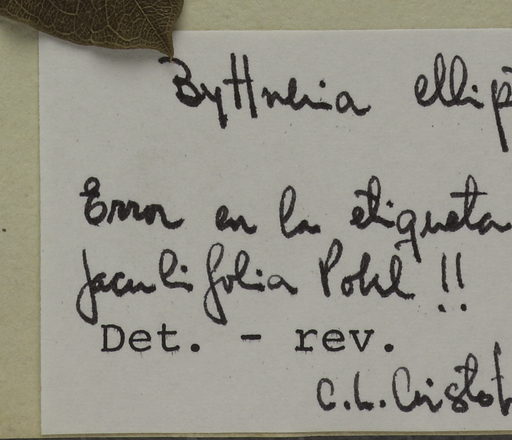 Byttneria ellip
Error en la etiqueta
jaculifolia Pohl !!
Det. - rev.
C.L. Cristob